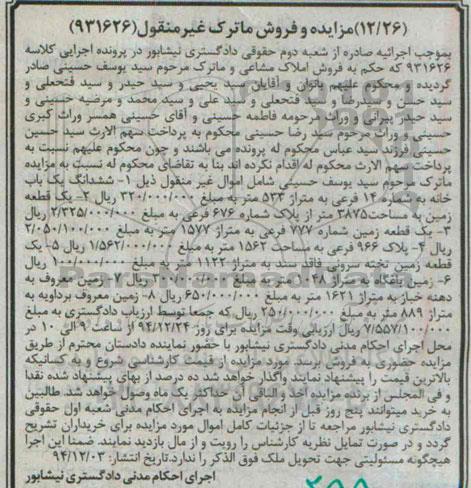 (۱۲/۲۶)مزایده و فروش ماترک غیر منقول(۹۳۱۶۲۶)
بموجب اجرائیه صادره از شعبه دوم حقوقی دادگستری نیشابور در پرونده اجرایی کلاسه
۹۳۱۶۲۶ که حکم به فروش املاک مشاعی و ماترک مرحوم سید یوسف حسینی صادر
گردیده و محکوم علیهم بانوان و آقایان سید یحیی و سید حیدر و سید فتحعلی و
سید حسن و سیدرضا و سید فتحعلی و سید علی و سید محمد و مرضیه حسینی و
سید حیدر پیرانی و وراث مرحومه فاطمه حسینی و آقای حسینی همسر وراث کبری
حسینی و وراث مرحوم سید رضا حسینی محکوم به پرداخت سهم الارث سید حسین
حسینی فرزند سید عباس محکوم له پرونده می باشند و چون محکوم علیهم نسبت به
پرداخت سهم الارث محکوم له اقدام نکرده اند بنا به تقاضای محکوم له نسبت به مزایده
ماترک مرحوم سید یوسف حسینی شامل اموال غیر منقول ذیل ۱- ششدانگ یک باب
خانه به شماره ۱۴ فرعی به متراژ ۵۳۳ متر به مبلغ ۳۲۰/۰۰۰/۰۰۰ ریال ۲- یک قطعه
زمین به مساحت۳۸۷۵ متر از پلاک شماره ۶۷۶ فرعی به مبلغ ۲/۳۲۵/۰۰۰/۰۰۰ ریال
۳- یک قطعه زمین شماره ۷۷۷ فرعی به متراژ ۱۵۷۷ متر به مبلغ ۲/۰۵۰/۱۰۰/۰۰۰
ریال ۴- پلاک ۹۶۶ فرعی به مساحت ۱۵۶۲ متر به مبلغ ۱/۵۶۲/۰۰۰/۰۰۰ ریال ۵- یک
قطعه زمین تخته سرونی فاقد سند به متراژ ۱۱۲۲ متر به مبلغ ۱۰۰/۰۰۰/۰۰۰ ریال
۶- زمین باغگاه به متراژ ۱۰۴۸ متر به مبلغ ۳۰۰/۰۰۰/۰۰۰ ریال ۷- زمین معروف به
دهنه خباز به متراژ ۱۶۲۱ متر به مبلغ ۶۵۰/۰۰۰/۰۰۰ ریال ۸- زمین معروف برداویه به
متراژ ۸۸۹ متر به مبلغ ۲۵۰/۰۰۰/۰۰۰ ریال که جمعا توسط ارزیاب دادگستری به مبلغ
۷/۵۵۷/۱۰۰/۰۰۰ ریال ارزیابی وقت مزایده برای روز ۹۴/۱۲/۲۴ از ساعت ۹ الی ۱۰ در
محل اجرای احکام مدنی دادگستری نیشابور با حضور نماینده دادستان محترم از طریق
مزایده حضوری به فروش برسد مورد مزایده از قیمت کارشناسی شروع و به کسانیکه
بالاترین قیمت را پیشنهاد نمایند واگذار خواهد شد ده درصد از بهای پیشنهاد شده نقدا
و فی المجلس از برنده مزایده اخذ و الباقی آن حداکثر یک ماه وصول خواهد شد. طالبین
به خرید میتوانند پنج روز قبل از انجام مزایده به اجرای احکام مدنی شعبه اول حقوقی
دادگستری نیشابور مراجعه تا از جزئیات کامل اموال مورد مزایده برای خریداران تشریح
گردد و در صورت تمایل نظریه کارشناس را رویت و از مال بازدید نمایند. ضمنا این اجرا
هیچگونه مسئولیتی جهت تحویل ملک فوق الذکر را ندارد.تاریخ انتشار: ۹۴/۱۲/۰۳
اجرای احکام مدنی دادگستری نیشابور